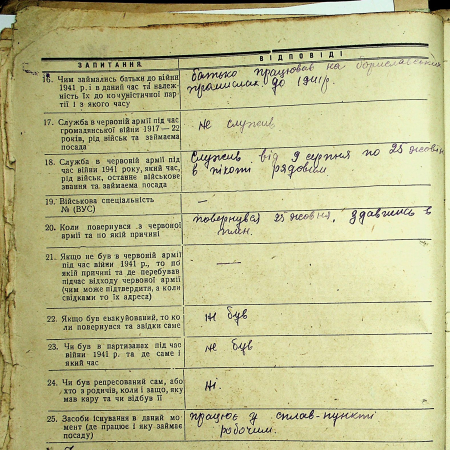 ЗАПИТАННЯ
ВІДПОВІДІ
16. Чим займались батьки до війни
1941 р. і в даний час та належ-
ність їх до комуністичної пар-
тії і з якого часу
батько працював на бориславських
промислах до 1941р.
17. Служба в червоній армії під час
громадянської війни 1917—22
років, рід військ та займаєма
посада
не служив
18. Служба в червоній армії під
час війни 1941 року, який час,
рід військ, останнє військове
звання та займаєма посада
Служив від 9 серпня по 25 жовтн
в пікоті рядовим
19. Військова спеціальність
№ (ВУС)
—
20. Коли повернувся з червоної
армії та по якій причині
повернувся 25 жовтня, здавшись в
плін.
21. Якщо не був в червоній армії
під час війни 1941 р., то по
якій причині та де перебував
підчас відходу червоної армії
(чим може підтвердити, а коли
свідками то їх адреса)
—
22. Якщо був евакуйований, то ко-
ли повернувся та звідки саме
не був
23. Чи був в партизанах під час
війни 1941 р. та де саме і
який час
не був
24. Чи був репресований сам, або
хто з родичів, коли і защо, яку
мав кару та чи відбув її
ні.
25. Засоби існування в даний мо-
мент (де працює і яку займає
посаду)
працює у сплав-пункті
робочим.